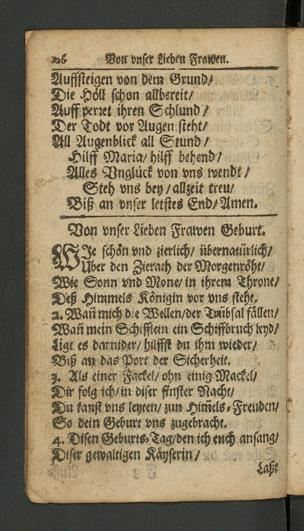 206 Von vnser Lieben Frawen.
Auffsteigen von dem Grund/
Die Höll schon allbereit/
Auffsperret ihren Schlund/
Der Todt vor Augen steht/
All Augenblick all Stund/
Hilff Maria/ hilff behend/
Alles Vnglück von vns wendt/
Steh vns bey/ allzeit treu/
Biß an vnser letstes End/ Amen.
Von vnser Lieben Frawen Geburt.
WJe schön vnd zierlich/ übernatürlich/
Über den Zierath der Morgenröht/
Wie Sonn vnd Mone/ in ihrem Throne/
Deß Himmels Königin vor vns steht.
2. Wañ mich die Wellen/ der Trübsal fällen/
Wañ mein Schifflein ein Schiffbruch leyd/
Ligt es darnider/ hilffst du ihm wieder/
Biß an das Port der Sicherheit.
3. Als einer Fackel/ ohn einig Mackel/
Dir folg ich/ in diser finster Nacht/
Du kanst vns leyten/ zun Him̃els-Freuden/
So dein Geburt vns zugebracht.
4. Disen Geburts-Tag/ den ich euch ansag/
Diser gewaltigen Käyserin/
Laßt